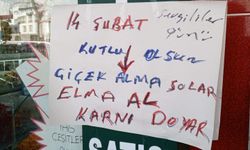 14 ŞUBAT sevgililer
günü
KUTLU OLSUN
ÇİÇEK ALMA SOLAR
ELMA AL
KARNI DOYAR
ÇEŞİTLERİ
SATIŞ